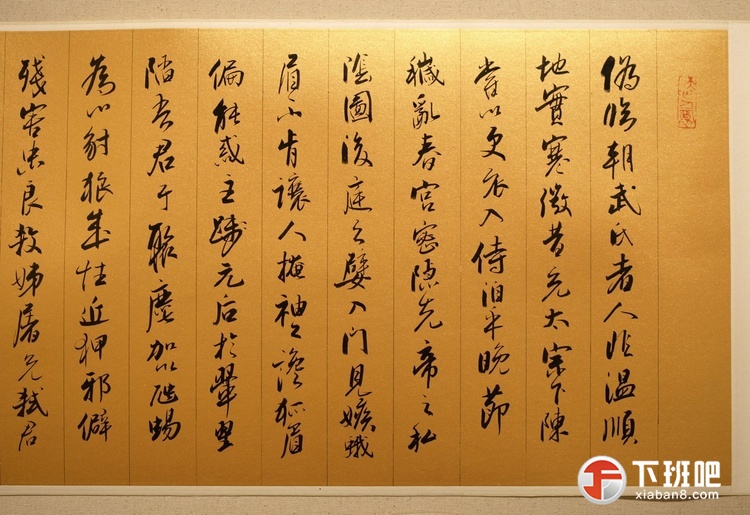 偽臨朝武氏者人非温順
地實寒微昔充太宗下陳
嘗以更衣入侍洎乎晚節
穢亂春宮密隱先帝之私
陰圖後庭之嬖入門見嫉蛾
眉不肯讓人掩袖工讒狐眉
偏能惑主踐元后於翬翟
陷吾君于聚麀加以虺蜴
為心豺狼成性近狎邪僻
殘害忠良殺姊屠兄弒君
下班吧
xiaban8.com